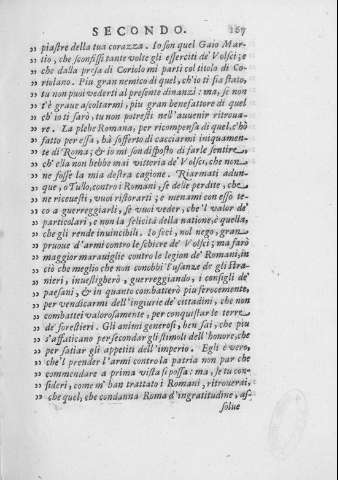 SECONDO. 167
„ piastre della tua corazza. Io son quel Gaio Mar-
„ tio, che sconfissi tante volte gli esserciti de' Volsci; e
„ che dalla presa di Coriolo mi partì col titolo di Co-
„ riolano. Piu gran nemico di quel, ch'io ti sia stato,
„ tu non puoi vederti al presente dinanzi: ma, se non
„ t'è graue ascoltarmi, piu gran benefattor di quel
„ ch'io ti sarò, tu non potresti nell'auuenir ritroua-
„ re. La plebe Romana, per ricompensa di quel, c'hò
„ fatto per essa, hà sofferto di cacciarmi iniquamen-
„ te di Roma; & io mi son disposto di farle sentire,
„ ch'ella non hebbe mai vittoria de' Volsci, che non
„ ne fosse la mia destra cagione. Riarmati adun-
„ que, o Tullo, contro i Romani, se delle perdite, che
„ ne riceuesti, vuoi ristorarti; e menami con esso te-
„ co a guerreggiarli, se vuoi veder, che 'l valor de'
„ particolari, e non la felicità della natione, è quella,
„ che gli rende inuincibili. Io feci, nol nego, gran
„ pruoue d'armi contro le schiere de' Volsci; ma farò
„ maggior marauiglie contro le legion de' Romani, in
„ ciò che meglio che non conobbi l'usanze de gli stra-
„ nieri, inuestigherò, guerreggiando, i consigli de'
„ paesani, & in quanto combatterò piu ferocemente,
„ per vendicarmi dell'ingiurie de' cittadini, che non
„ combattei valorosamente, per conquistar le terre
„ de forestieri. Gli animi generosi, ben sai, che piu
„ s'affaticano per secondar gli stimoli dell'honore, che
„ per satiar gli appetiti dell'imperio. Egli è vero,
„ che 'l prender l'armi contro la patria non par che
„ commendare a prima vista si possa: ma, se tu con-
„ sideri, come m'han trattato i Romani, ritrouerai,
„ che quel, che condanna Roma d'ingratitudine, as-
solue